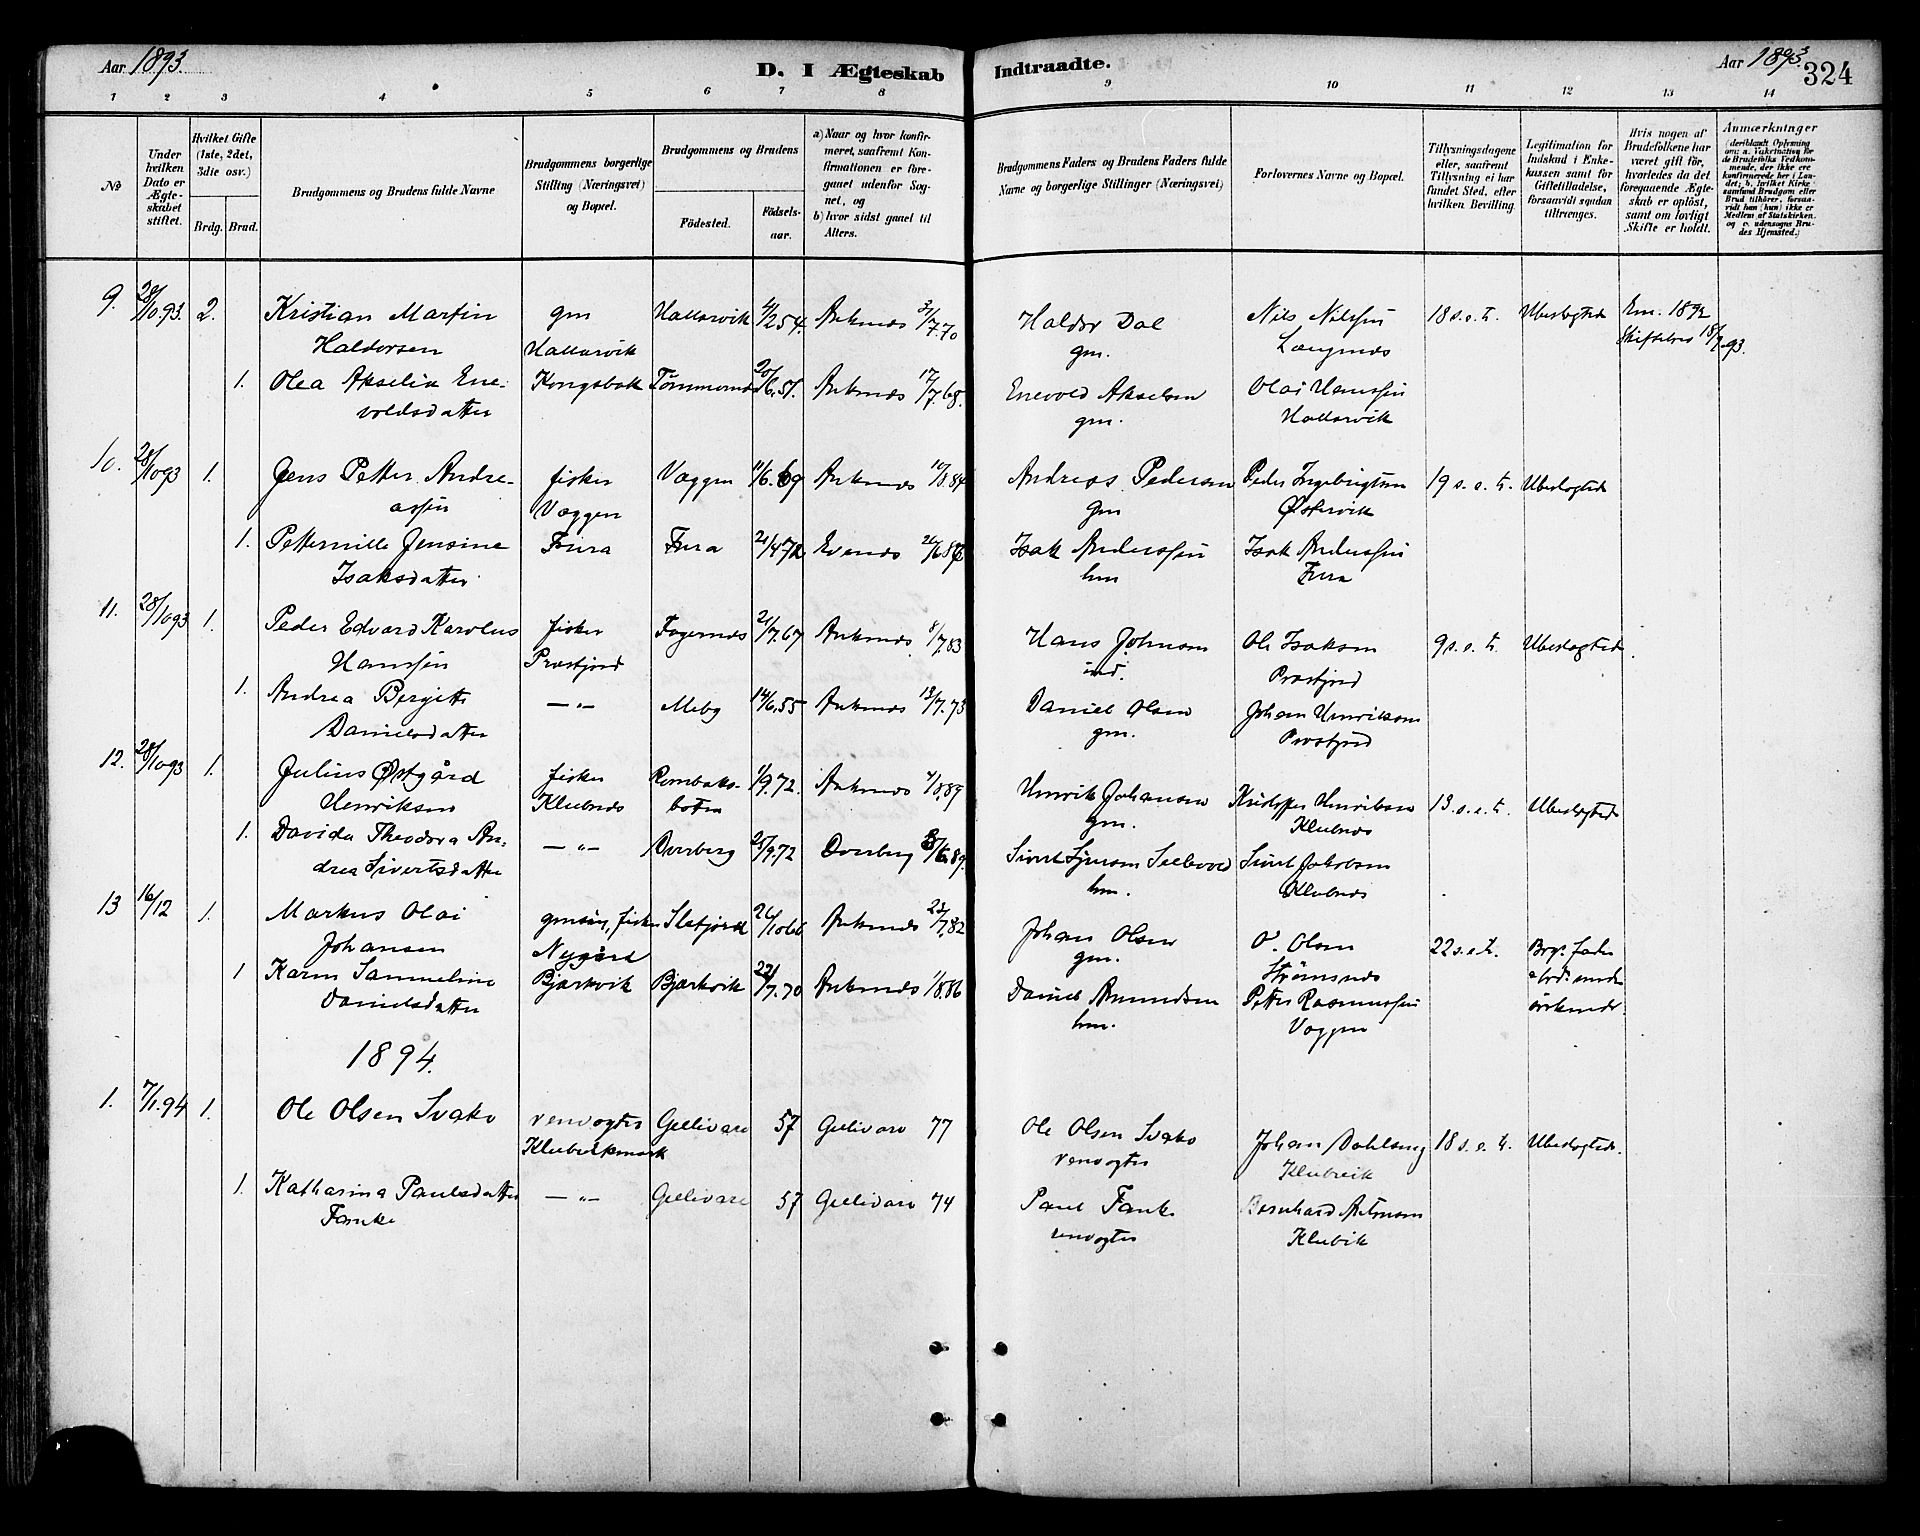 Aar 1893.
D. I Ægteskab Indtraadte.
Aar 1893.
324
1 2 3 4 5 6 7 8 9 10 11 12 13 14
No
Under hvilken Dato er Ægteskabet stiftet.
Hvilket Gifte (1ste, 2det, 3die osv.)
Brdg. Brud.
Brudgommens og Brudens fulde Navne
Brudgommens borgerlige Stilling (Næringsvei) og Bopæl.
Brudgommens og Brudens
Fødested.
Fødselsaar.
a) Naar og hvor konfirmeret, saafremt Konfirmationen er foregaaet udenfor Sognet, og
b) hvor sidst gaaet til Alters.
Brudgommens Faders og Brudens Faders fulde Navne og borgerlige Stillinger (Næringsvei)
Forlovernes Navne og Bopæl.
Tillysningsdagene eller, saafremt Tillysning ei har fundet Sted, efter hvilken Bevilling.
Legitimation for Indskud i Enkekassen samt for Giftetilladelse, forsaavidt saadan tiltrænges.
Hvis nogen af Brudefolkene har været gift før, hvorledes da det foregaaende Ægteskab er opløst, samt om lovligt Skifte er holdt.
Anmærkninger (deriblandt Oplysning om: a. Vakcination for de Brudefolks Vedkommende, der ikke ere konfirmerede her i Landet; b. hvilket Kirkesamfund Brudgom eller Brud tilhører, forsaavidt han (hun) ikke er Medlem af Statskirken. og c. udensogns Brudes Hjemsted.)
9. 28/10.93. 2. Kristian Martin gm Hallarvik 4/2 54. Ankenes 3/7.70 Haldor Dal Nils Nilssen 18 s.e.tr. Ubeslegtede Em. 1892
Haldorsen Hallarvik gm. Langnes Skiftebrev 18/7.93.
1. Olea Akselia Ene- Kongsbak Tømmernes 20/6.51. Ankenes 17/7.68. Enevold Akselsen Olai Hanssen
voldsdatter gm. Hallarvik
10. 28/1093 1. Jens Petter Andre- fisker Væggen 11/6.69 Ankenes 10/8.84 Andreas Pedersen Peder Ingebrigtsen 19 s.e.tr. Ubeslegtede
assen Væggen gm Østervik
1. Petternille Jensine Fura Fura 21/4 72 Evenes Isak Anderssen Isak Anderssen
Isaksdatter hm Fura
11. 28/1093 1. Peder Edvard Karolus fisker Fagernes 21/7.67 Ankenes 8/7.83 Hans Johnsen Ole Isaksen 9 s.e.tr. Ubeslegtede.
Hanssen Præstjord ind. Præstjord
1. Andrea Bergitte —"— Meby 14/6.55 Ankenes 13/7.73 Daniel Olsen Johan Henriksen
Danielsdatter gm. Præstjord
12. 28/1093 1. Julius Østgård fisker Rombaks- 1/9.72. Ankenes 4/8.89 Henrik Johansen Kristoffer Henriksen 13. s.e.tr. Ubeslegtede
Henriksen Klubnes botn gm. Klubnes
1. Davida Theodora An- —"— Dverberg 25/9.72 Dverberg Sivert Jakobsen
drea Sivertsdatter hm. Klubnes
13 16/12 1. Markus Olai gmsøn, fisker 26/1066 Ankenes 23/7.82 Johan Olsen O. Olsen 22 s.e.tr. Brgs. fader
Johansen Nygård gm. Strømsnes
1 Karen Sammeline Bjerkvik Bjerkvik 22/7.70 Ankenes 1/8.86 Daniel Amundsen Petter Rasmussen
Danielsdatter hm. Væggen
1894.
1. 7/1.94 1. Ole Olsen Svako renvogter Gellivare 57 Gellivare 77 Ole Olsen Svako Johan Dahlberg 18 s.e.tr. Ubeslegtede.
Klubvikmark renvogter Klubvik
1. Katharina Paulsdatter —"— Gellivare 57 Gellivare 74 Paul Fanke Bernhard
Fanke renvogter Klubvik